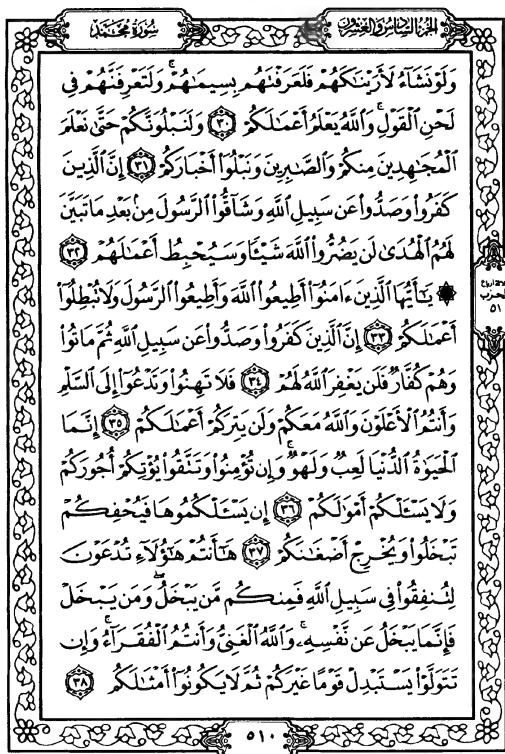 سورة محمد
الجزء السادس والعشرون
وَلَوْ نَشَآءُ لَأَرَيْنَـٰكَهُمْ فَلَعَرَفْتَهُم بِسِيمَـٰهُمْ ۚ وَلَتَعْرِفَنَّهُمْ فِى
لَحْنِ ٱلْقَوْلِ ۚ وَٱللَّهُ يَعْلَمُ أَعْمَـٰلَكُمْ ٣٠ وَلَنَبْلُوَنَّكُمْ حَتَّىٰ نَعْلَمَ
ٱلْمُجَـٰهِدِينَ مِنكُمْ وَٱلصَّـٰبِرِينَ وَنَبْلُوَا۟ أَخْبَارَكُمْ ٣١ إِنَّ ٱلَّذِينَ
كَفَرُوا۟ وَصَدُّوا۟ عَن سَبِيلِ ٱللَّهِ وَشَآقُّوا۟ ٱلرَّسُولَ مِنۢ بَعْدِ مَا تَبَيَّنَ
لَهُمُ ٱلْهُدَىٰ لَن يَضُرُّوا۟ ٱللَّهَ شَيْـًٔا وَسَيُحْبِطُ أَعْمَـٰلَهُمْ ٣٢
۞ يَـٰٓأَيُّهَا ٱلَّذِينَ ءَامَنُوٓا۟ أَطِيعُوا۟ ٱللَّهَ وَأَطِيعُوا۟ ٱلرَّسُولَ وَلَا تُبْطِلُوٓا۟
أَعْمَـٰلَكُمْ ٣٣ إِنَّ ٱلَّذِينَ كَفَرُوا۟ وَصَدُّوا۟ عَن سَبِيلِ ٱللَّهِ ثُمَّ مَاتُوا۟
وَهُمْ كُفَّارٌ فَلَن يَغْفِرَ ٱللَّهُ لَهُمْ ٣٤ فَلَا تَهِنُوا۟ وَتَدْعُوٓا۟ إِلَى ٱلسَّلْمِ
وَأَنتُمُ ٱلْأَعْلَوْنَ وَٱللَّهُ مَعَكُمْ وَلَن يَتِرَكُمْ أَعْمَـٰلَكُمْ ٣٥ إِنَّمَا
ٱلْحَيَوٰةُ ٱلدُّنْيَا لَعِبٌ وَلَهْوٌ ۚ وَإِن تُؤْمِنُوا۟ وَتَتَّقُوا۟ يُؤْتِكُمْ أُجُورَكُمْ
وَلَا يَسْـَٔلْكُمْ أَمْوَٰلَكُمْ ٣٦ إِن يَسْـَٔلْكُمُوهَا فَيُحْفِكُمْ
تَبْخَلُوا۟ وَيُخْرِجْ أَضْغَـٰنَكُمْ ٣٧ هَـٰٓأَنتُمْ هَـٰٓؤُلَآءِ تُدْعَوْنَ
لِتُنفِقُوا۟ فِى سَبِيلِ ٱللَّهِ فَمِنكُم مَّن يَبْخَلُ ۖ وَمَن يَبْخَلْ
فَإِنَّمَا يَبْخَلُ عَن نَّفْسِهِۦ ۚ وَٱللَّهُ ٱلْغَنِىُّ وَأَنتُمُ ٱلْفُقَرَآءُ ۚ وَإِن
تَتَوَلَّوْا۟ يَسْتَبْدِلْ قَوْمًا غَيْرَكُمْ ثُمَّ لَا يَكُونُوٓا۟ أَمْثَـٰلَكُم ٣٨
الحزب
٥١
٥١٠